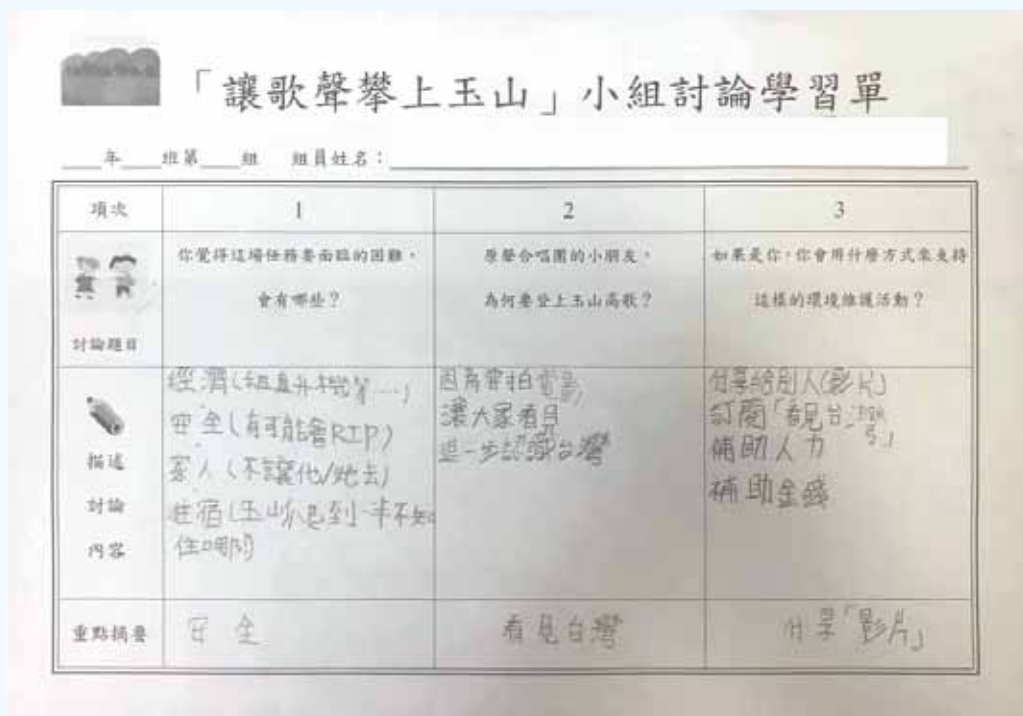 「讓歌聲攀上玉山」小組討論學習單
年 班第 組 組員姓名：
項次
1
2
3
討論題目
你覺得這場任務要面臨的困難，
會有哪些？
原聲合唱團的小朋友，
為何要登上玉山高歌？
如果是你，你會用什麼方式來支持
這樣的環境維護活動？
描述
討論
內容
經濟(組直升機等…)
安全(有可能會RIP)
家人(不讓他/她去)
住宿(玉山爬到一半不知
住哪
因為要拍電影
讓大家看見
進一步認識台灣
分享給別人(影片)
訂閱「看見台灣」
補助人力
補助金錢
重點摘要
安全
看見台灣
分享「影片」